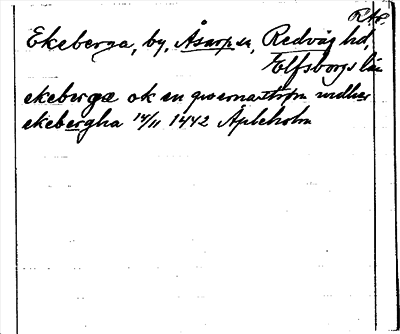 RAp.
Ekeberga, by, Åsarp sn, Redväg hd,
Elfsborgs län
ekeberga ok en qwernastrøm wndher
ekebergha 14/11 1442 Äpleholm